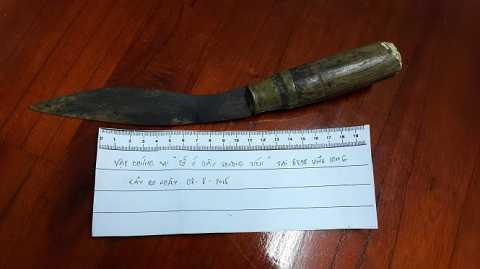 0 1 2 3 4 5 6 7 8 9 10 11 12 13 14 15 16 17 18 19
VẬT CHỨNG VỤ "CỐ Ý GÂY THƯƠNG TÍCH" TẠI
XẢY RA NGÀY 08-8-